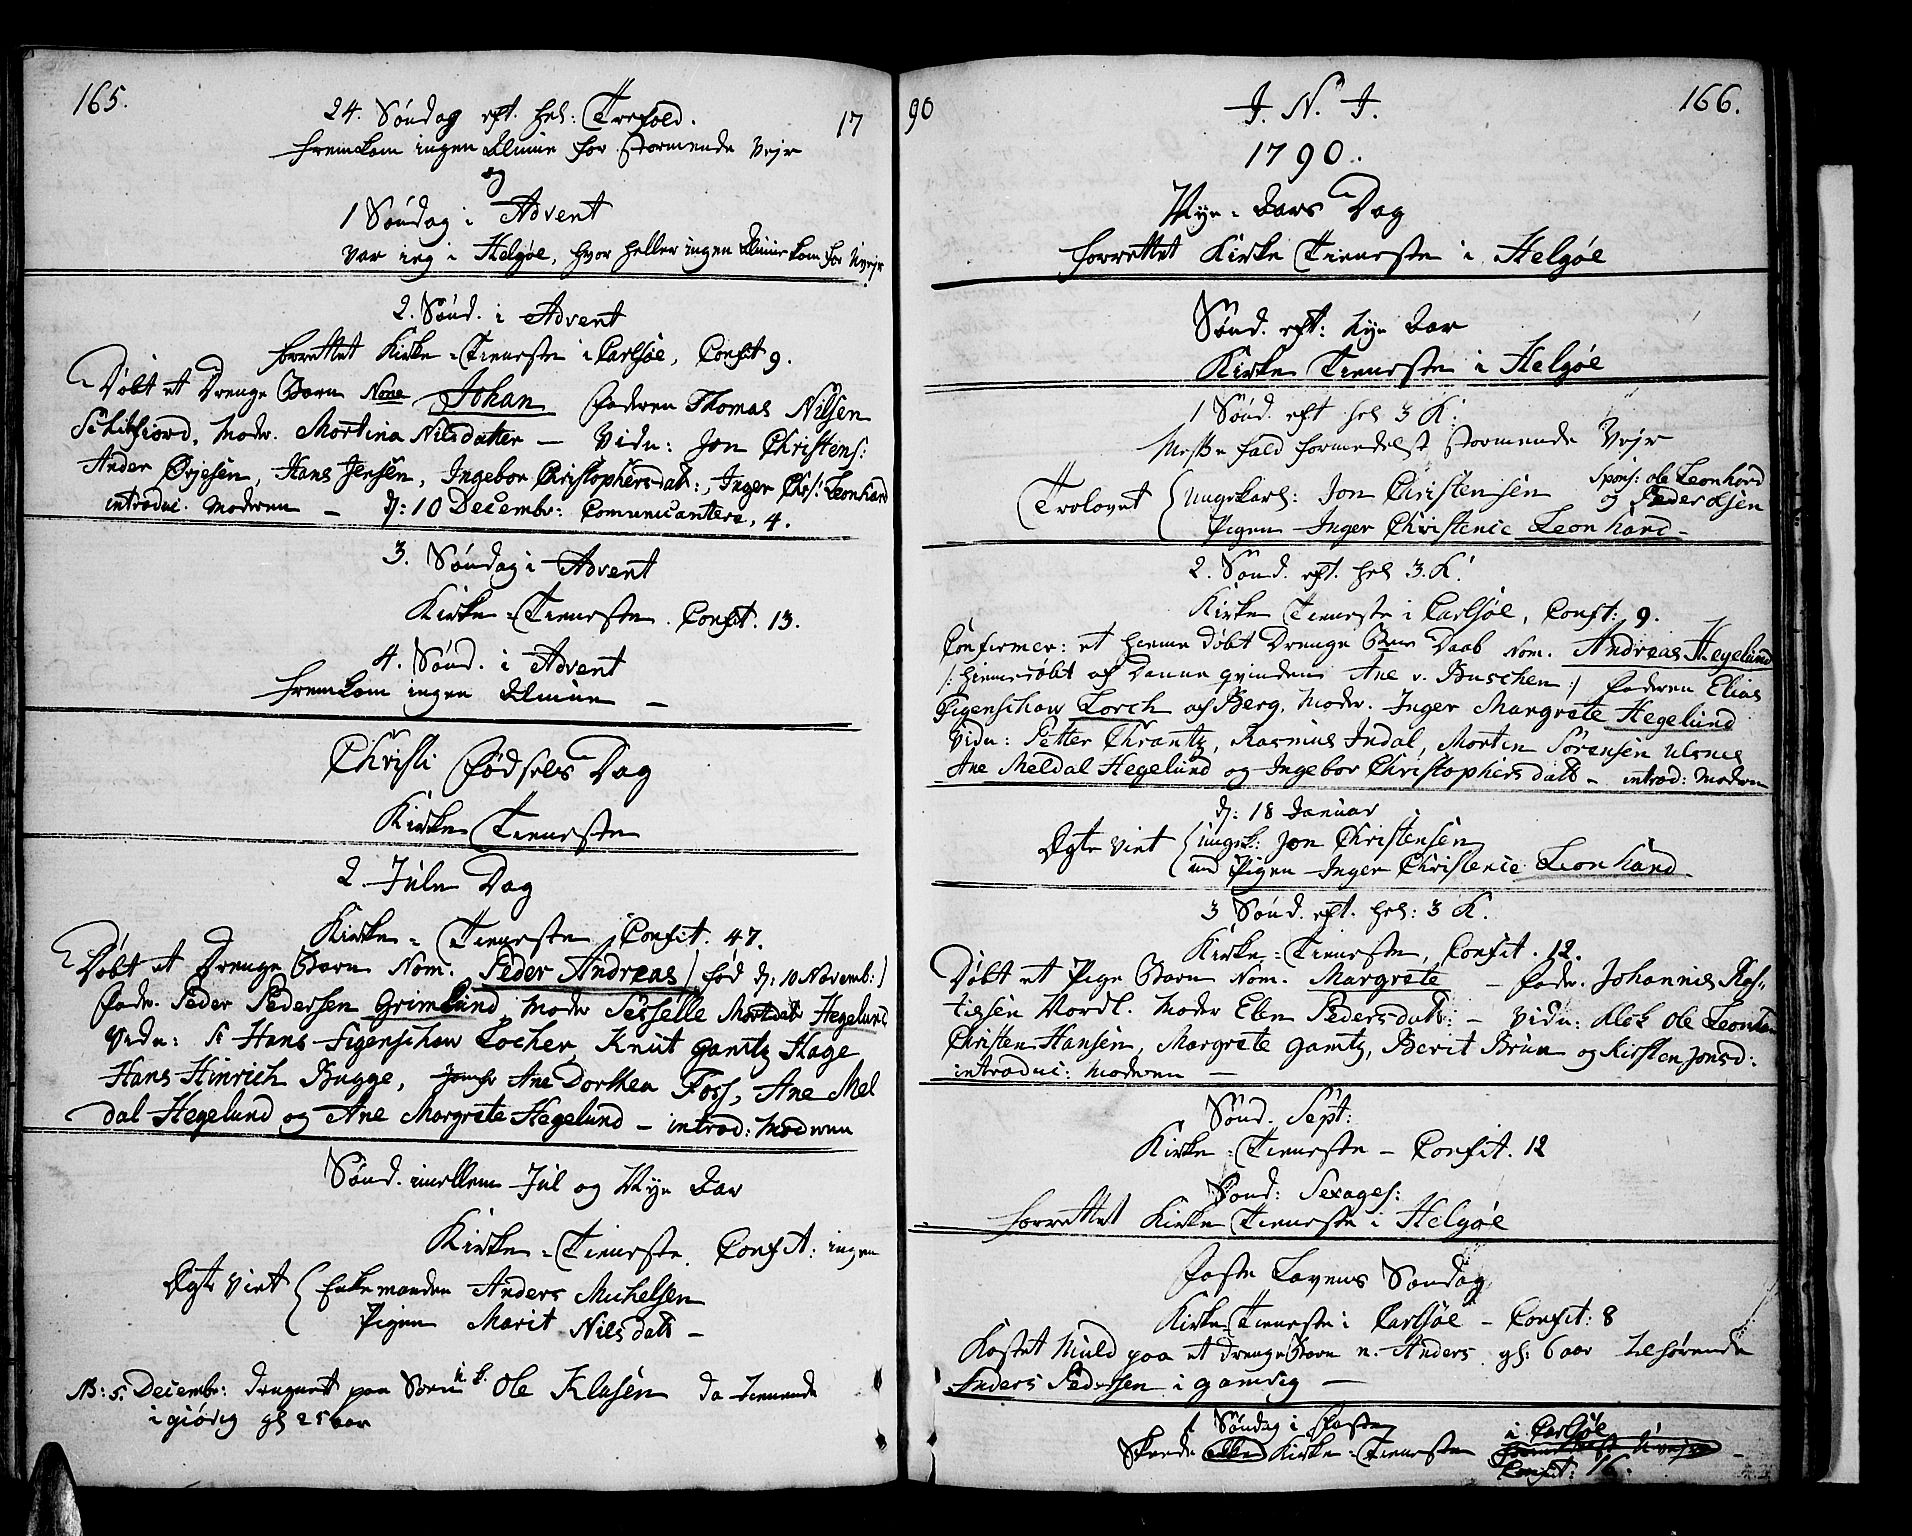 165.
24. Søndag eft. hel: Trefold. 17
fremkom ingen Almue for stormende Vejr
og
1 Søndag i Advent
var jeg i Helgøe, hvor heller ingen Almue kom for Uvejr
2. Sønd. i Advent
forrettet Kirke-Tieneste i Carlsøe, Confit 9.
Døbt et Drenge Barn Nove Johan Faderen Thomas Nilsen
Schibfiord, Modr. Mortina Nilsdatter – Vidn: Jon Christens:
Ander Ørjesen, Hans Jensen, Ingebor Christophersdatr:, Inger Chr: Leonhard
introduc. Moderen – d: 10 Decembr: Comunicantere, 4.
3. Søndag i Advent
Kirke-Tieneste. Confit. 13.
4. Sønd. i Advent
fremkom ingen Almue –
Christi Fødsels Dag
Kirke Tieneste
2 Jule Dag
Kirke-Tieneste, Confit. 47.
Døbt et Drenge Barn Nom. Peder Andreas / fød d: 10 Novemb: /
Fadr. Peder Pedersen Grimlund, Modr Sesselle Mortdatr Hegelund
Vidn: Hans Figenschow Locher, Knut Gamtz Hage,
Hans Hinrich Bugge, Jomfr Ane Dorthea Foss, Ane Mel
dal Hegelund og Ane Margrete Hegelund – introd: Moderen
Sønd. imellem Jul og Nye Aar
Kirke-Tieneste. Confit: ingen
Ægte viet { Enkemanden Anders Michelsen
Pigen Marit Nilsdatr –
NB: 5. Decembr: Ole Klasen da tienende
i giøvig gl 25 aar
90 J. N. J. 166.
1790.
Nye-Aars Dag
forrettet Kirke Tieneste i Helgøe
Sønd. eft: Nye Aar
Kirke Tieneste i Helgøe
1 Sønd. eft hel 3 K:
Messe fald formedelst stormende Vejr
Trolovet { Ungekarl: Jon Christensen Spons: ole Leonhard
og Peder Olsen
Pigen Inger Christence Leonhard –
2. Sønd. eft. hel 3. K:
Kirke Tieneste i Carlsøe, Confit: 9.
Confirmer: et hieme døbt Drenge Barns Daab Nom. Andreas Hegelund
/: hiemedøbt af Danneqvinden Ane v. Buschen :/ Faderen Elias
Figenschow Lorch af Berg, Modr. Inger Margrete Hegelund
Vidn: Petter Chrantz, Rasmus Indal, Morten Sørensen Ulsnes
Ane Meldal Hegelund og Ingebor Christophersdatr – introd: Moderen
d: 18 Januar
Ægte viet { Ungk: Jon Christensen
med Pigen Inger Christence Leonhard
3 Sønd. eft. hel: 3 K.
Kirke-Tieneste, Confit. 12.
Døbt et Pige Barn Nom. Margrete – Fadr. Johannis Ras-
tiesen Nordl. Modr Elen Pedersdatr: – Vidn: Klok Ole Leonhar
Christen Hansen, Margrete Gamtz, Berit Brun og Kirsten Jonsd:
introduc: Moderen –
Sønd. Sept:
Kirke-Tieneste – Confit. 12
Sond: Sexages:
forrettet Kirke Tieneste i Helgøe
Faste Lavens Søndag
Kirke Tieneste i Carlsøe – Confit: 8
Kastet Muld paa et drenge Barn n. Anders gl: 6 aar tilhørende
Anders Pedersen i Gamvig –
1 Søndag i Faste
Skeede Kirke-Tieneste i Carlsøe
Confit: 16.